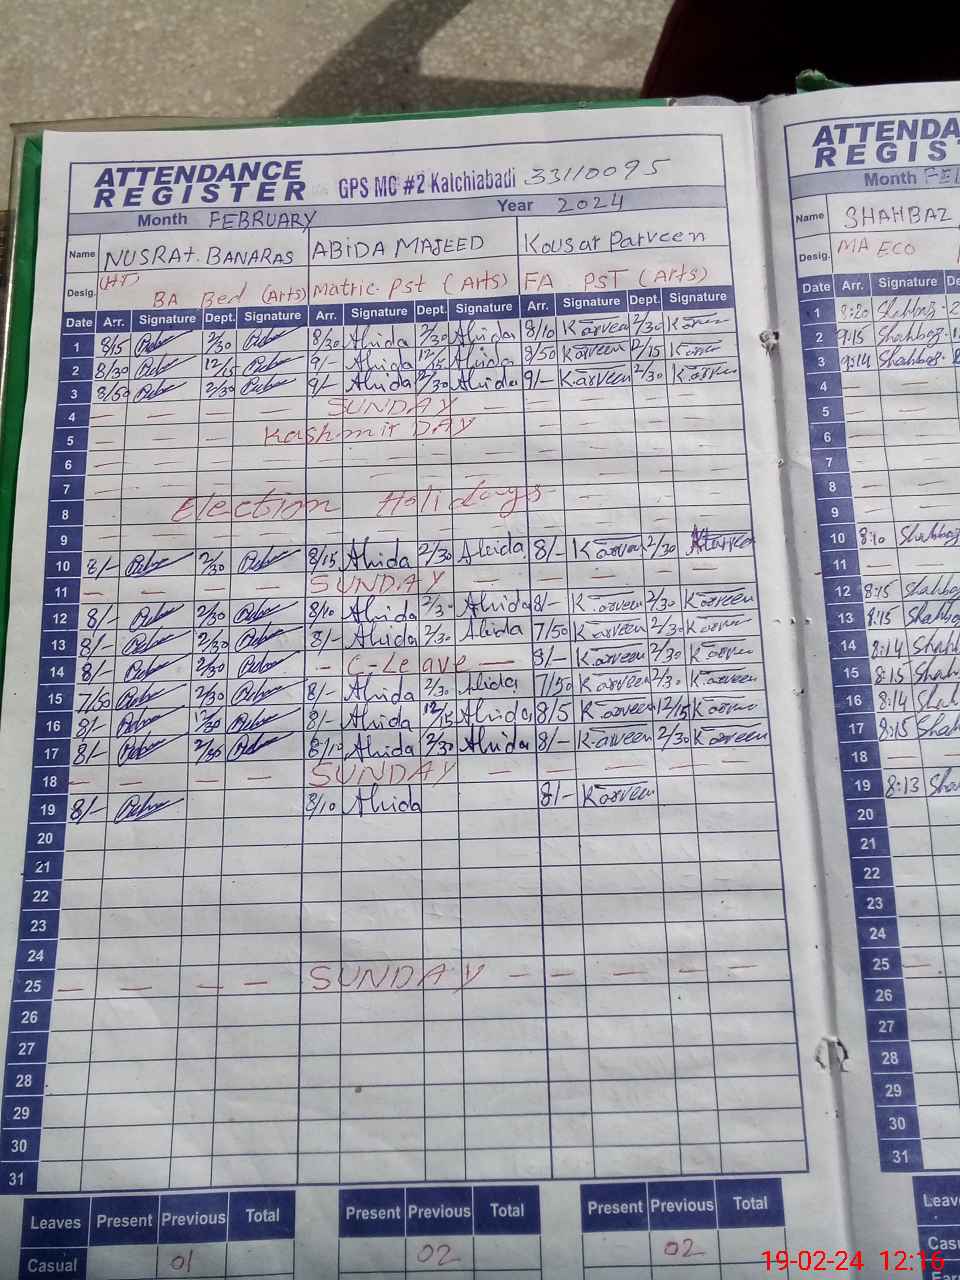 ATTENDANCE REGISTER GPS MC #2 Katchiabadi 33110095
Month FEBRUARY Year 2024
Name NUSRAt. BANARAS ABIDA MAJEED Kousar Parveen
Desig. (HT) BA Bed (Arts) Matric. Pst (Arts) FA PST (Arts)
Date Arr. Signature Dept. Signature Arr. Signature Dept. Signature Arr. Signature Dept. Signature
1 8/5 2/30 8/30 Abida 2/30 Abida 8/10 Karveen 2/30
2 8/30 12/15 9/- Abida 12/15 Abida 8/50 Karveen 12/15
3 8/50 2/30 9/- Abida 2/30 Abida 9/- Karveen 2/30 Karveen
4 SUNDAY
5 Kashmir DAY
6
7
8 Election Holidays
9
10 8/- 2/30 8/15 Abida 2/30 Abida 8/- Karveen 2/30
11 SUNDAY
12 8/- 2/30 8/10 Abida 2/30 Abida 8/- Karveen 2/30 Karveen
13 8/- 2/30 8/- Abida 2/30 Abida 7/50 Karveen 2/30
14 8/- 2/30 - C-Leave - 8/- Karveen 2/30 Karveen
15 7/50 2/30 8/- Abida 2/30 Abida 7/50 Karveen 2/30 Karveen
16 8/- 8/- Abida 12/15 Abida 8/5 Karveen 12/15
17 8/- 2/30 8/10 Abida 2/30 Abida 8/- Karveen 2/30 Karveen
18 SUNDAY
19 8/- 8/10 Abida 8/- Karveen
20
21
22
23
24
25 SUNDAY
26
27
28
29
30
31
Leaves Present Previous Total Present Previous Total Present Previous Total
Casual 01 02 02
ATTENDA
REGIST
Month FEB
Name SHAHBAZ
Desig. MA ECO
Date Arr. Signature De
1 8:20 Shahbaz
2 9:15 Shahbaz
3 9:14 Shahbaz
4
5
6
7
8
9
10 8:10 Shahbaz
11
12 8:15 Shahba
13 8:15 Shahba
14 8:14 Shahb
15 8:15 Shah
16 8:14 Shah
17 8:15 Shah
18
19 8:13 Sha
20
21
22
23
24
25
26
27
28
29
30
31
Leave
Casu
19-02-24 12:16